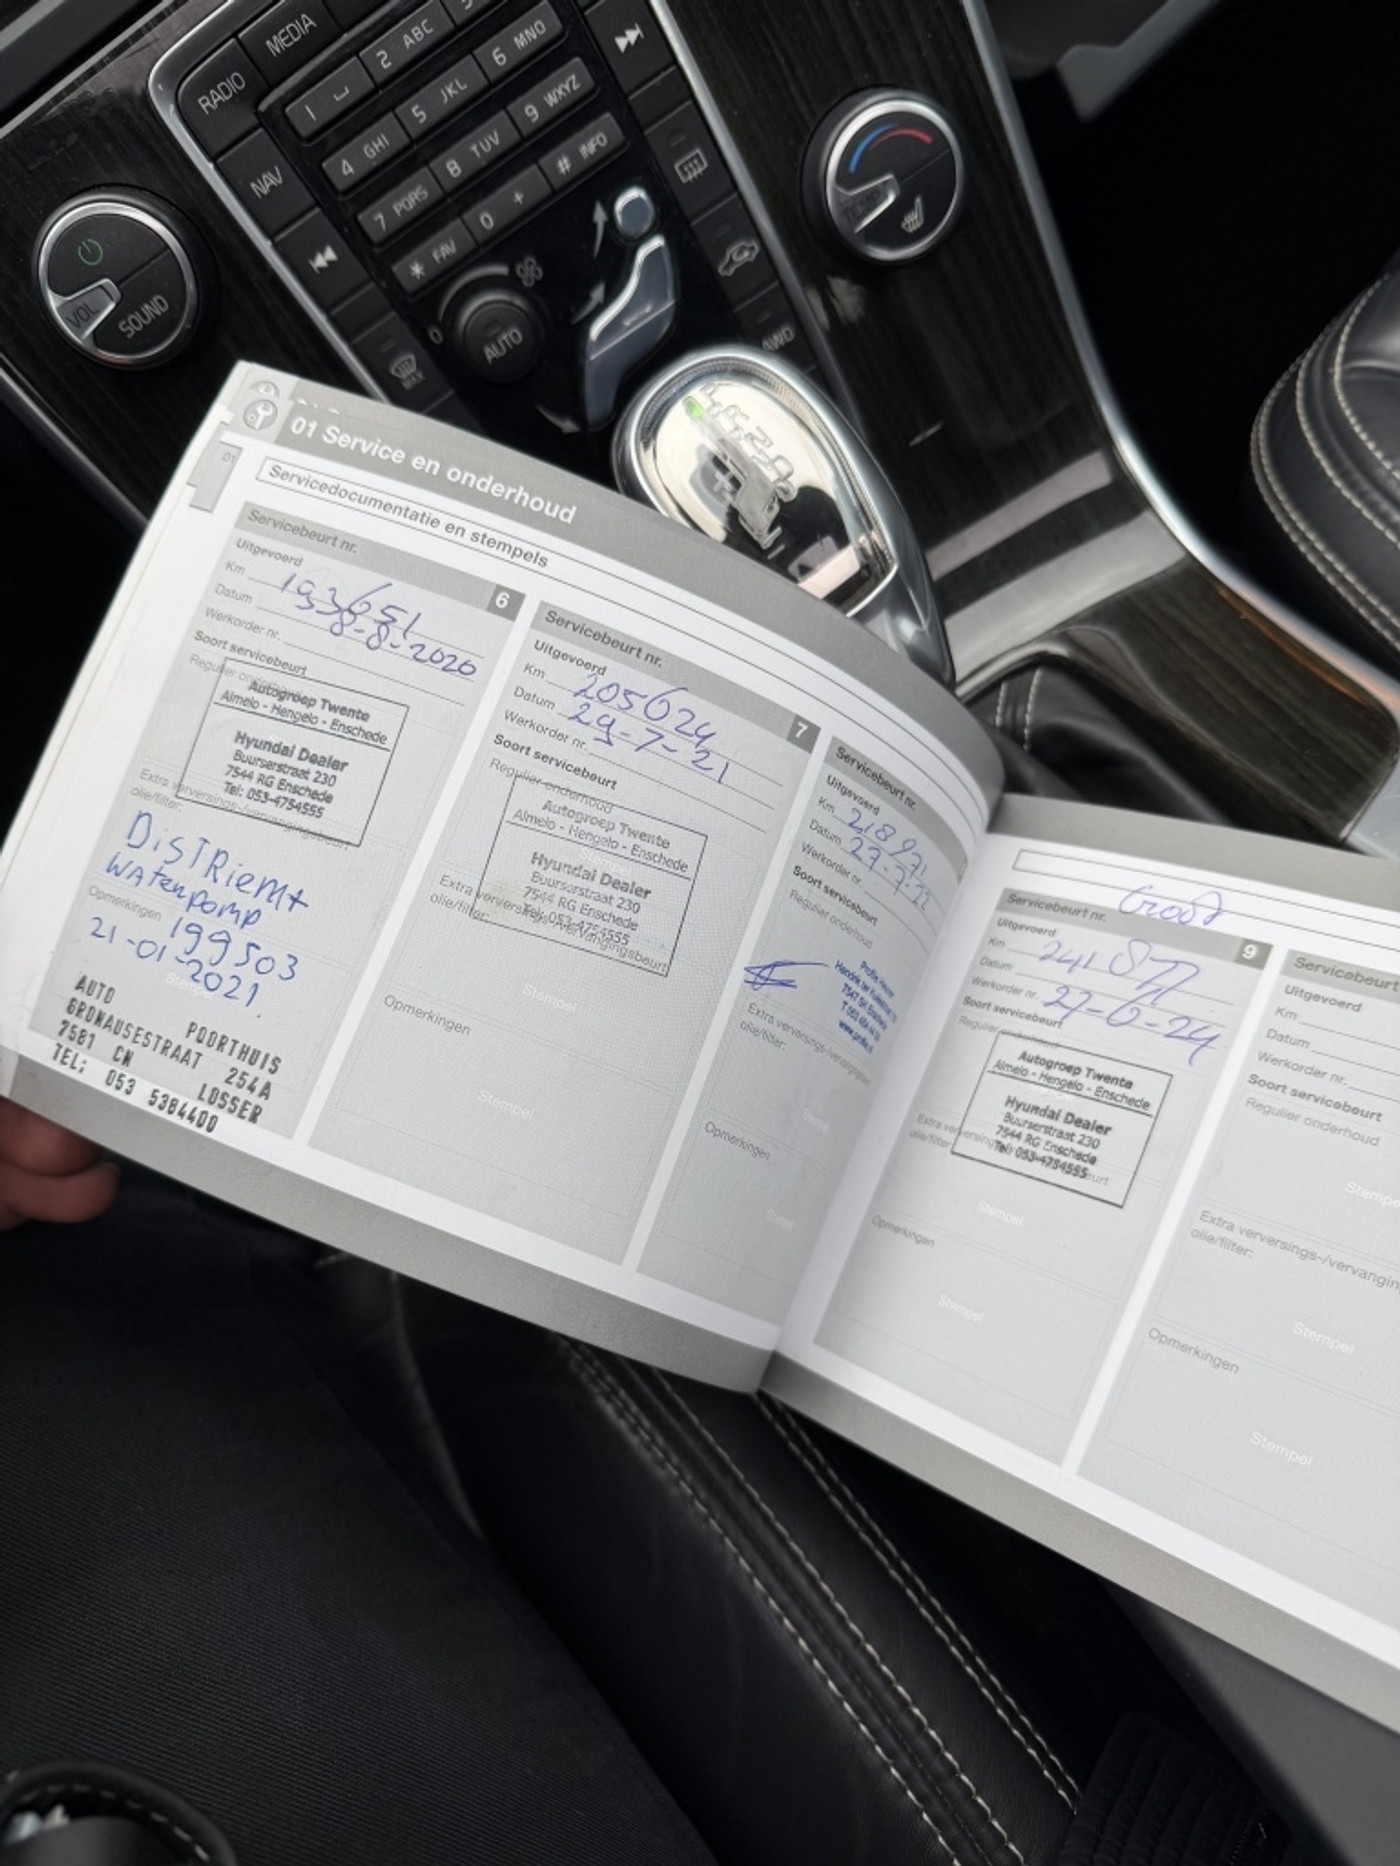 RADIO
MEDIA
NAV
1
2 ABC
4 GHI
5 JKL
6 MNO
7 PQRS
8 TUV
9 WXYZ
* FAV
0 +
# INFO
VOL
SOUND
0
AUTO
MAX
TEMP
AWD
01
01 Service en onderhoud
Servicedocumentatie en stempels
Servicebeurt nr. 6
Uitgevoerd
Km 193651
Datum 8-8-2020
Werkorder nr.
Soort servicebeurt
Regulier onderhoud
Autogroep Twente
Almelo - Hengelo - Enschede
Hyundai Dealer
Buurserstraat 230
7544 RG Enschede
Tel: 053-4754555
Extra verversings-/vervangingsbeurt
olie/filter:
DISTRIEM+
WATERPOMP
Opmerkingen 199503
21-01-2021
Stempel
AUTO POORTHUIS
GRONAUSESTRAAT 254A
7581 CN LOSSER
TEL: 053 5384400
Servicebeurt nr. 7
Uitgevoerd
Km 205624
Datum 29-7-21
Werkorder nr.
Soort servicebeurt
Regulier onderhoud
Autogroep Twente
Almelo - Hengelo - Enschede
Hyundai Dealer
Buurserstraat 230
7544 RG Enschede
Tel: 053-4754555
Extra verversings-/vervangingsbeurt
olie/filter:
Stempel
Opmerkingen
Stempel
Servicebeurt nr.
Uitgevoerd
Km 218971
Datum 27-7-22
Werkorder nr.
Soort servicebeurt
Regulier onderhoud
Extra verversings-/vervangingsbeurt
olie/filter:
Stempel
Opmerkingen
Stempel
Groot
Servicebeurt nr. 9
Uitgevoerd
Km 241877
Datum 27-6-24
Werkorder nr.
Soort servicebeurt
Regulier onderhoud
Autogroep Twente
Almelo - Hengelo - Enschede
Hyundai Dealer
Buurserstraat 230
7544 RG Enschede
Tel: 053-4754555
Extra verversings-/vervangingsbeurt
olie/filter:
Stempel
Opmerkingen
Stempel
Servicebeurt
Uitgevoerd
Km
Datum
Werkorder nr.
Soort servicebeurt
Regulier onderhoud
Stempel
Extra verversings-/vervangin
olie/filter:
Stempel
Opmerkingen
Stempel